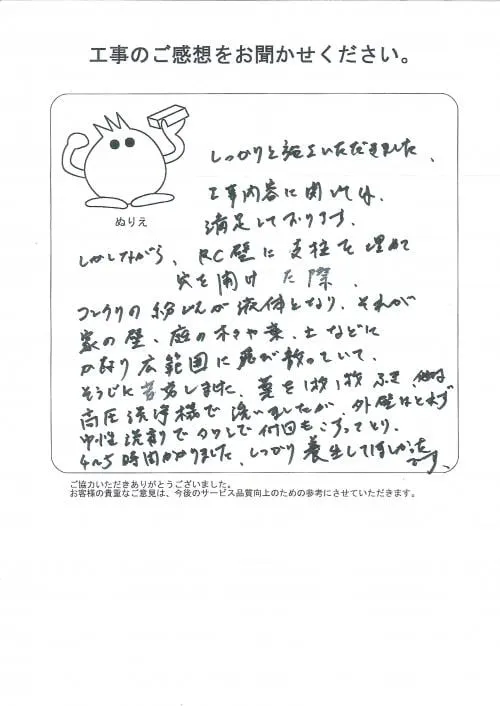 工事のご感想をお聞かせください。
ぬりえ
しっかりと施工いただきました、
工事内容に関しては、
満足しております。
しかしながら、RC壁に支柱を埋めて
穴を開けた際、
コンクリの粉じんが液体となり、それが
家の壁、庭の木々や葉、土などに
かなり広範囲に飛び散っていて、
そうじに苦労しました、葉を1枚1枚ふき、他は
高圧洗浄機で洗いましたが、外壁はとれず
中性洗剤でタワシで何回もこすってとり、
4〜5時間かかりました、しっかり養生してほしかった
です、
ご協力いただきありがとうございました。
お客様の貴重なご意見は、今後のサービス品質向上のための参考にさせていただきます。